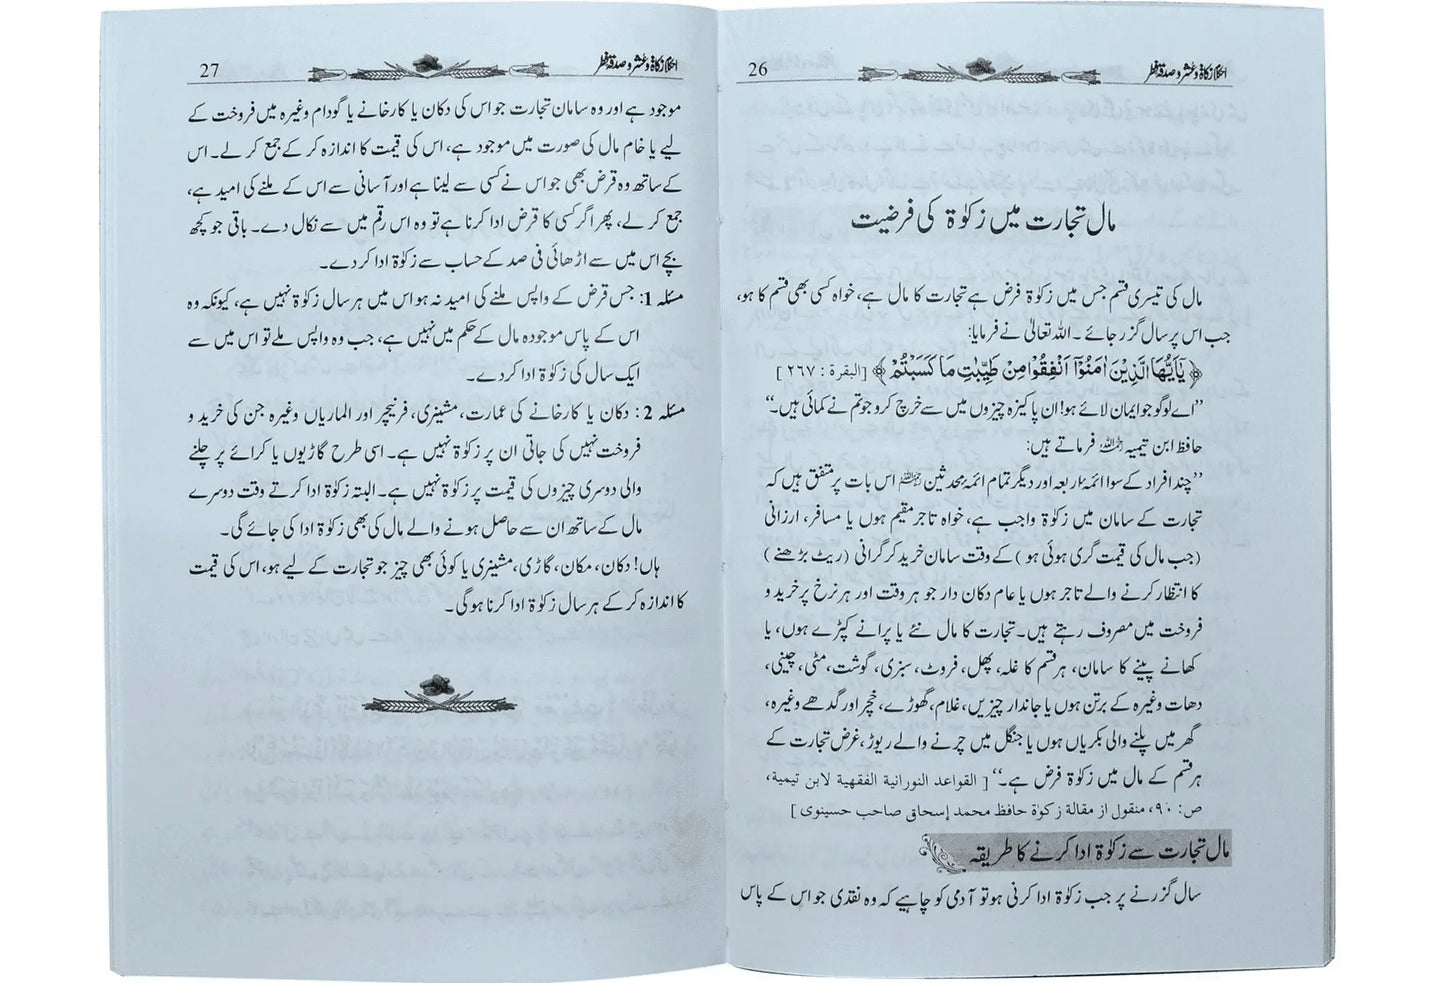 احکام زکاۃ و عشر و صدقہ فطر
26
مال تجارت میں زکوٰۃ کی فرضیت
مال کی تیسری قسم جس میں زکوٰۃ فرض ہے تجارت کا مال ہے، خواہ کسی بھی قسم کا ہو،
جب اس پر سال گزر جائے۔ اللہ تعالیٰ نے فرمایا:
﴿يٰۤاَيُّهَا الَّذِيْنَ اٰمَنُوْۤا اَنْفِقُوْا مِنْ طَيِّبٰتِ مَا كَسَبْتُمْ﴾ [البقرة : ٢٦٧]
’’اے لوگو جو ایمان لائے ہو! ان پاکیزہ چیزوں میں سے خرچ کرو جو تم نے کمائی ہیں۔‘‘
حافظ ابن تیمیہ رحمہ اللہ فرماتے ہیں:
’’چند افراد کے سوا ائمۂ اربعہ اور دیگر تمام ائمۂ محدثین رحمہم اللہ اس بات پر متفق ہیں کہ
تجارت کے سامان میں زکوٰۃ واجب ہے، خواہ تاجر مقیم ہوں یا مسافر، ارزانی
(جب مال کی قیمت گری ہوئی ہو) کے وقت سامان خرید کر گرانی (ریٹ بڑھنے)
کا انتظار کرنے والے تاجر ہوں یا عام دکان دار جو ہر وقت اور ہر نرخ پر خرید و
فروخت میں مصروف رہتے ہیں۔ تجارت کا مال نئے یا پرانے کپڑے ہوں، یا
کھانے پینے کا سامان، ہر قسم کا غلہ، پھل، فروٹ، سبزی، گوشت، مٹی، چینی،
دھات وغیرہ کے برتن ہوں یا جاندار چیزیں، غلام، گھوڑے، خچر اور گدھے وغیرہ،
گھر میں پلنے والی بکریاں ہوں یا جنگل میں چرنے والے ریوڑ، غرض تجارت کے
ہر قسم کے مال میں زکوٰۃ فرض ہے۔‘‘ [القواعد النورانية الفقهية لابن تيمية،
ص: ٩٠، منقول از مقالة زكوٰة حافظ محمد إسحاق صاحب حسينوى]
مال تجارت سے زکوٰۃ ادا کرنے کا طریقہ
سال گزرنے پر جب زکوٰۃ ادا کرنی ہو تو آدمی کو چاہیے کہ وہ نقدی جو اس کے پاس
احکام زکاۃ و عشر و صدقہ فطر
27
موجود ہے اور وہ سامان تجارت جو اس کی دکان یا کارخانے یا گودام وغیرہ میں فروخت کے
لیے یا خام مال کی صورت میں موجود ہے، اس کی قیمت کا اندازہ کر کے جمع کر لے۔ اس
کے ساتھ وہ قرض بھی جو اس نے کسی سے لینا ہے اور آسانی سے اس کے ملنے کی امید ہے،
جمع کر لے، پھر اگر کسی کا قرض ادا کرنا ہے تو وہ اس رقم میں سے نکال دے۔ باقی جو کچھ
بچے اس میں سے اڑھائی فی صد کے حساب سے زکوٰۃ ادا کر دے۔
مسئلہ 1: جس قرض کے واپس ملنے کی امید نہ ہو اس میں ہر سال زکوٰۃ نہیں ہے، کیونکہ وہ
اس کے پاس موجودہ مال کے حکم میں نہیں ہے، جب وہ واپس ملے تو اس میں سے
ایک سال کی زکوٰۃ ادا کر دے۔
مسئلہ 2: دکان یا کارخانے کی عمارت، مشینری، فرنیچر اور الماریاں وغیرہ جن کی خرید و
فروخت نہیں کی جاتی ان پر زکوٰۃ نہیں ہے۔ اسی طرح گاڑیوں یا کرائے پر چلنے
والی دوسری چیزوں کی قیمت پر زکوٰۃ نہیں ہے۔ البتہ زکوٰۃ ادا کرتے وقت دوسرے
مال کے ساتھ ان سے حاصل ہونے والے مال کی بھی زکوٰۃ ادا کی جائے گی۔
ہاں! دکان، مکان، گاڑی، مشینری یا کوئی بھی چیز جو تجارت کے لیے ہو، اس کی قیمت
کا اندازہ کر کے ہر سال زکوٰۃ ادا کرنا ہو گی۔